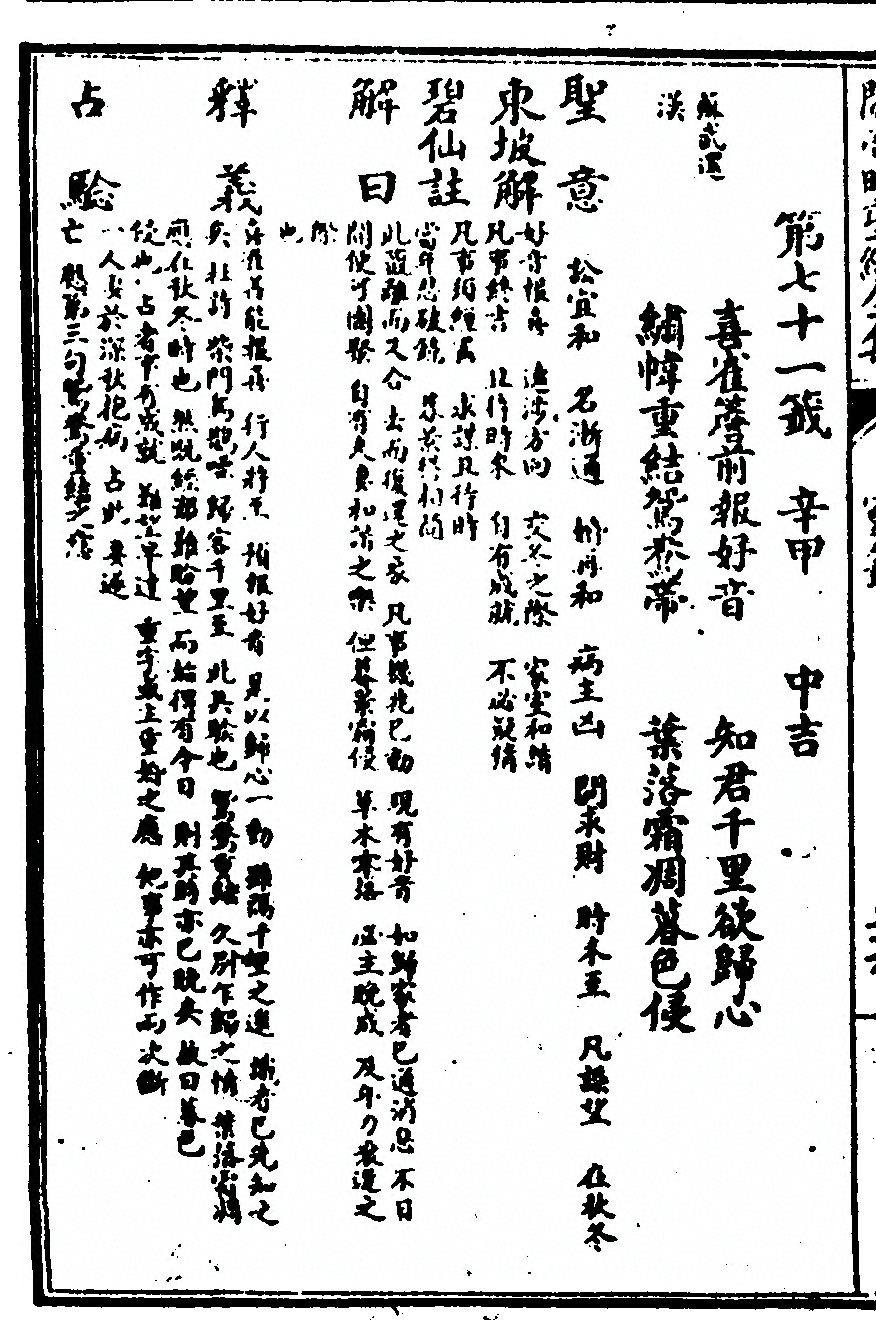 第七十一籤　辛甲　中吉
喜雀簷前報好音　知君千里欲歸心
繡幃重結鴛鴦帶　葉落霜凋暮色侵
蘇武還
漢
聖意　訟宜和　名漸通　婚用和　病主凶　問求財　時未至　凡謀望　在秋冬
東坡解　好音報喜　遠涉方向　交冬之際　家室和諧
凡事終吉　且待時來　自有成就　不必疑猜
碧仙註　凡事須經畧　求謀且待時
當年悲破鏡
解曰　此籤離而又合　去而復還之象　凡事機兆已動　現有好音　如歸家者已通消息　不日
間便可團聚　自有夫妻和諧之樂　但暮景霜侵　草木零落　必主晚成　及年力衰邁之
際
也
釋義　喜雀善能報喜　行人將至　預報好音　是以歸心一動　雖隔千里之遠　識者已先知之
矣　杜詩　柴門鳥雀噪　歸客千里至　此其驗也　鴛鴦重結　久別乍歸之情　葉落霜凋
應在秋冬時也　然既經離難盼望　而始得有今日　則其時亦已晚矣　故曰暮色
侵也　占者求有成就　難望早達　重字或主重婚之應　他事亦可作兩次斷
占驗　一人妻於深秋抱病　占此　妻遂
亡　應第三句鴛鴦重結之語